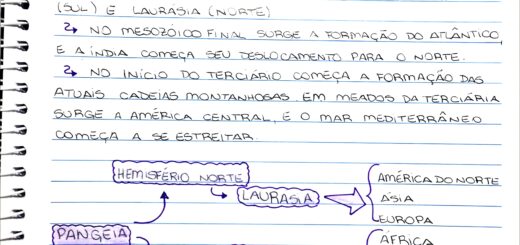 (SUL) E LAURASIA (NORTE)
NO MESOZÓICO FINAL SURGE A FORMAÇÃO DO ATLÂNTICO,
E A ÍNDIA COMEÇA SEU DESLOCAMENTO PARA O NORTE.
NO INÍCIO DO TERCIÁRIO COMEÇA A FORMAÇÃO DAS
ATUAIS CADEIAS MONTANHOSAS. EM MEADOS DA TERCIÁRIA
SURGE A AMÉRICA CENTRAL, E O MAR MEDITERRÂNEO
COMEÇA A SE ESTREITAR.
HEMISFÉRIO NORTE
LAURASIA
AMÉRICA DO NORTE
ÁSIA
EUROPA
PANGEIA
ÁFRICA